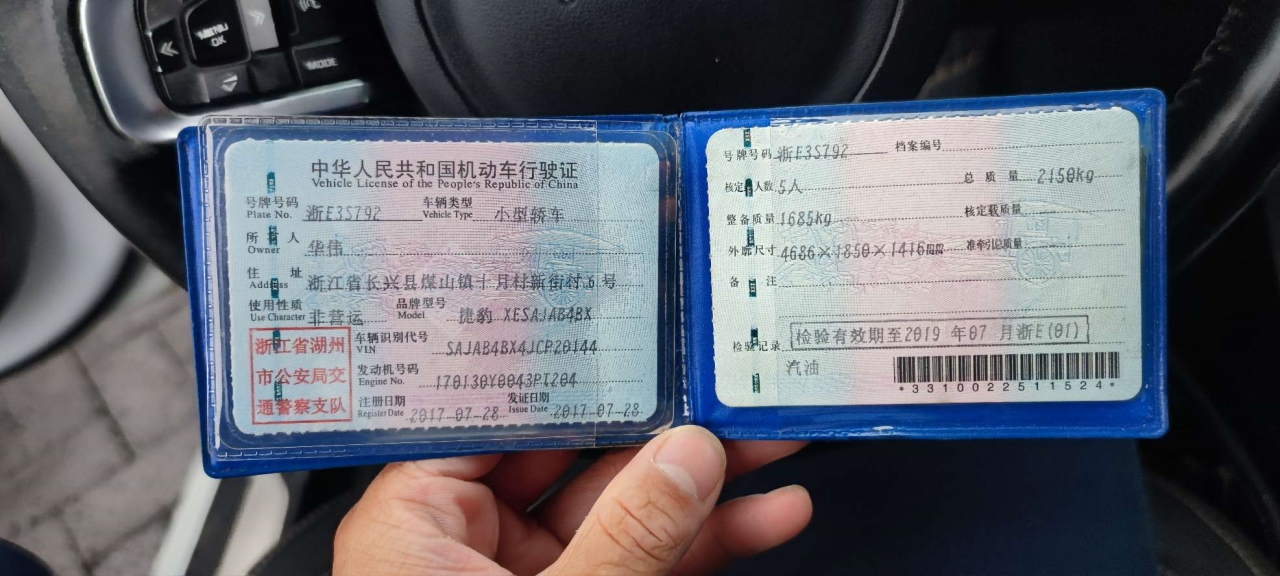 MENU
OK
MODE
中华人民共和国机动车行驶证
Vehicle License of the People's Republic of China
号牌号码 浙E3S792 车辆类型 小型轿车
Plate No. Vehicle Type
所有人 华伟
Owner
住址 浙江省长兴县煤山镇十月村新街村6号
Address
使用性质 非营运 品牌型号 捷豹 XESAJAB4BX
Use Character Model
浙江省湖州
市公安局交
通警察支队
车辆识别代号 SAJAB4BX4JCP20144
VIN
发动机号码 170130Y0043PT204
Engine No.
注册日期 2017-07-28 发证日期 2017-07-28
Register Date Issue Date
号牌号码 浙E3S792 档案编号
核定人数 5人 总质量 2150kg
整备质量 1685kg 核定载质量
外廓尺寸 4686×1850×1416 准牵引总质量
备注
检验有效期至2019年07月浙E(01)
检验记录
汽油
*3310022511524*